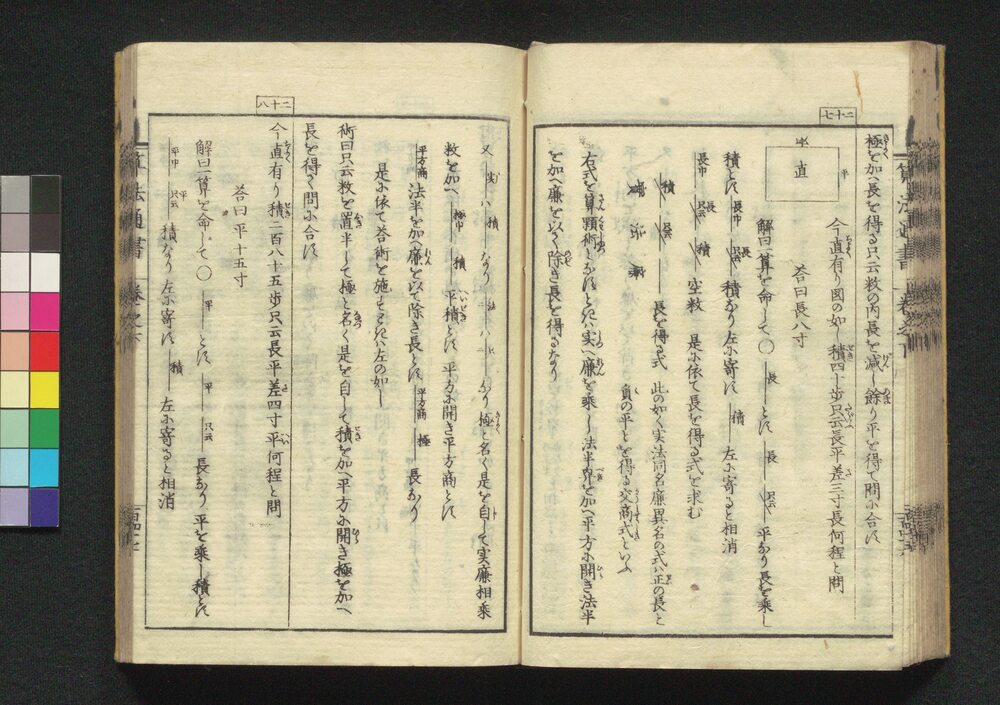 二十七
極を加へ長を得る只云数の内長を減し餘り平を得て問に合す
今直有り図の如 積四十歩只云長平差三寸長何程と問
平
直
答曰長八寸
解曰一算を命して〇 長 とす 長 只云 平なり長を乗し
積とす 長巾 長只云 積なり左に寄す 積 左に寄ると相消
長巾 長只云 積 空数 是に依て長を得る式を求む
積 只云 長を得る式 此の如く実法同名廉異名の式は正の長と
負の平とを得る交商式といふ
実 法 廉
右式を算顆術になすときは実へ廉を乗し法半冪を加へ平方に開き法半
を加へ廉を以て除き長を得るなり
算法通書
二十八
又 実ハ 積 なり 法ハ なり極と名く是を自して実廉相乗
数を加へ 極巾 積 平積とす 平方に開き平方商とす
平方商 法半を加へ廉を以て除き長とす 平方商 極 長なり
是に依て答術を施すときは左の如し
術曰只云数を置半して極と名く是を自して積を加へ平方に開き極を加へ
長を得て問に合す
今直有り積二百八十五歩只云長平差四寸平何程と問
答曰平十五寸
解曰一算を命して〇 平 とす 平 只云 長なり 平を乗し積とす
平巾 平只云 積なり左に寄す 積 左に寄ると相消
算法通書